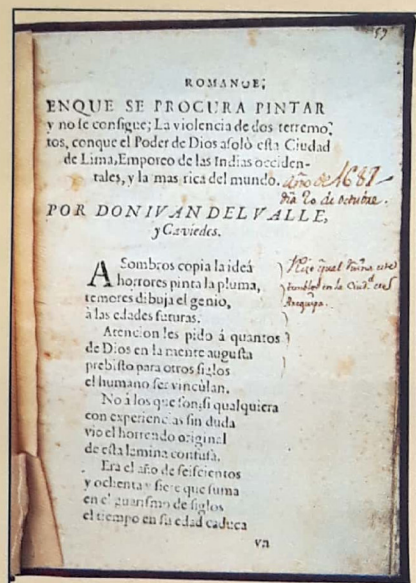 59
ROMANCE;
ENQUE SE PROCURA PINTAR
y no se consigue; La violencia de dos terremo,
tos, conque el Poder de Dios asoló esta Ciudad
de Lima, Emporeo de las Indias occiden-
tales, y la mas rica del mundo. año de 1687
dia 20 de octubre.
POR DON IVAN DEL VALLE,
y Caviedes.
ASombros copia la ideá
horrores pinta la pluma,
temores dibuja el genio,
à las edades futuras.
Atencion les pido á quantos
de Dios en la mente augusta
prebisto para otros siglos
el humano ser vinculan.
No á los que son; si qualquiera
con experiencias sin duda
vio el horrendo original
de esta lamina confusa.
Era el año de seiscientos
y ochenta y siete que suma
en el guarismo de siglos
el tiempo en su edad caduca
vn
Hizo igual ruina este
temblor en la Ciud. de
Arequipa.